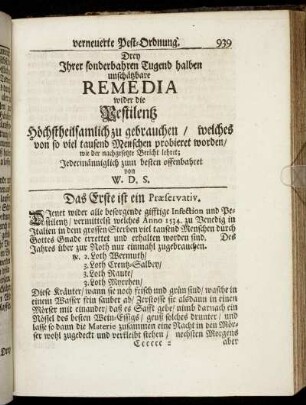 verneuerte Pest-Ordnung. 939
Drey
Ihrer sonderbahren Tugend halben
unschätzbare
REMEDIA
wider die
Pestilentz
Höchstheilsamlich zu gebrauchen / welches
von so viel tausend Menschen probieret worden /
wie der nachgesetzte Bericht lehret;
Jedermänniglich zum besten offenbahret
von
W. D. S.
Das Erste ist ein Præservativ.
DJenet wider alle besorgende gifftige Infection und Pe-
stilentz / vermittelst welches Anno 1574. zu Venedig in
Italien in dem grossen Sterben viel tausend Menschen durch
Gottes Gnade errettet und erhalten worden sind. Des
Jahres über zur Noth nur einmahl zugebrauchen.
℞. 2. Loth Wermuth /
2. Loth Creutz-Salbey /
2. Loth Raute /
2. Loth Myrrhen /
Diese Kräuter / wann sie noch frisch und grün sind / wasche in
einem Wasser fein sauber ab / Zerstosse sie alsdann in einen
Mörser mit einander / daß es Safft gebe / nimb darnach ein
Nössel des besten Wein-Essigs / geuß solches drunter / und
lasse so dann die Materie zusammen eine Nacht in den Mör-
ser wohl zugedeckt und verkleibt stehen / nechsten Morgens
Cccccc 2 aber